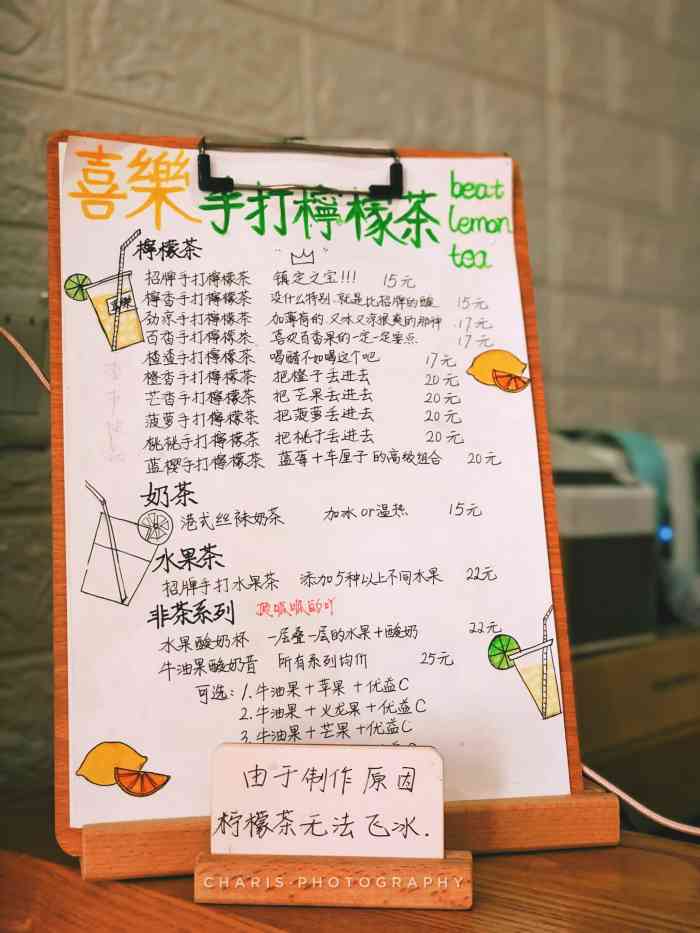 喜樂 手打檸檬茶 beat lemon tea
檸檬茶
招牌手打檸檬茶 镇定之宝!!! 15元
檸香手打檸檬茶 没什么特别,就是比招牌的酸 15元
劲凉手打檸檬茶 加薄荷的 又冰又凉很爽的那种 17元
百香手打檸檬茶 喜欢百香果的一定一定要点 17元
楂楂手打檸檬茶 喝醋不如喝这个吧 17元
橙香手打檸檬茶 把橙子丢进去 20元
芒香手打檸檬茶 把芒果丢进去 20元
菠萝手打檸檬茶 把菠萝丢进去 20元
桃桃手打檸檬茶 把桃子丢进去 20元
蓝樱手打檸檬茶 蓝莓+车厘子的高级组合 20元
奶茶
港式丝袜奶茶 加冰or温热 15元
水果茶
招牌手打水果茶 添加5种以上不同水果 22元
非茶系列
水果酸奶杯 一层叠一层的水果+酸奶 22元
牛油果酸奶昔 所有系列均价 25元
可选:1.牛油果+苹果+优益C
2.牛油果+火龙果+优益C
3.牛油果+芒果+优益C
由于制作原因
柠檬茶无法飞冰.
CHARIS·PHOTOGRAPHY